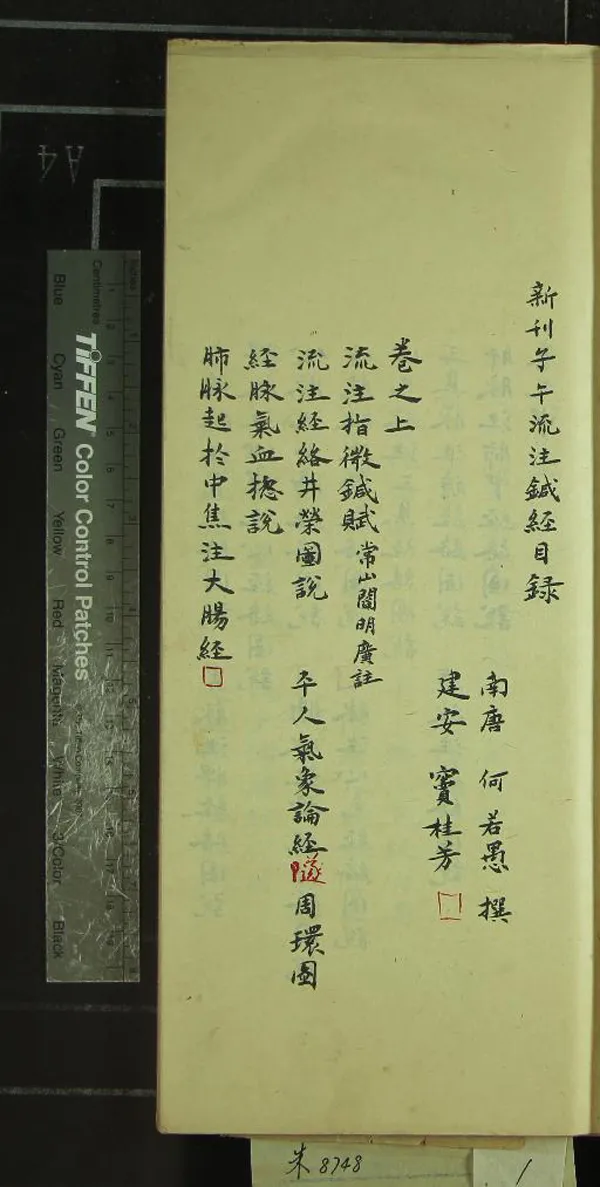 新刊子午流注鍼經目錄
南唐 何若愚 撰
建安 竇桂芳 □
卷之上
流注指微鍼賦 常山閻明廣註
流注經絡井榮圖說 平人氣象論經隧周環圖
經脉氣血揔說
肺脉起於中焦注大腸經□
A4
Inches
Centimetres
TIFFEN Color Control Patches
Blue Cyan Green Yellow Red Magenta White 3/Color Black
朱 8748
1